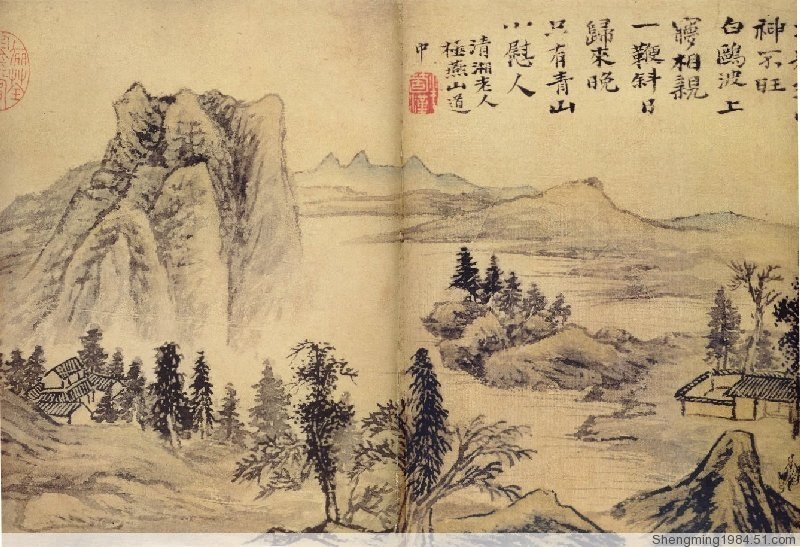 神不旺
白鷗波上
夢相親
一鞭斜日
歸來晚
只有青山
小慰人
清湘老人
極燕山道
中
Shengming1984.51.com